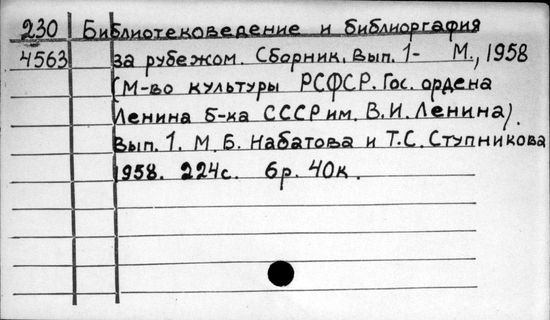 230 Библиотековедение и библиоргафия
4563 за рубежом. Сборник. Вып. 1- М., 1958
(М-во культуры РСФСР. Гос. ордена
Ленина б-ка СССР им. В.И. Ленина).
Вып. 1. М. Б. Набатова и Т.С. Ступникова
1958. 224с. 6р. 40к.